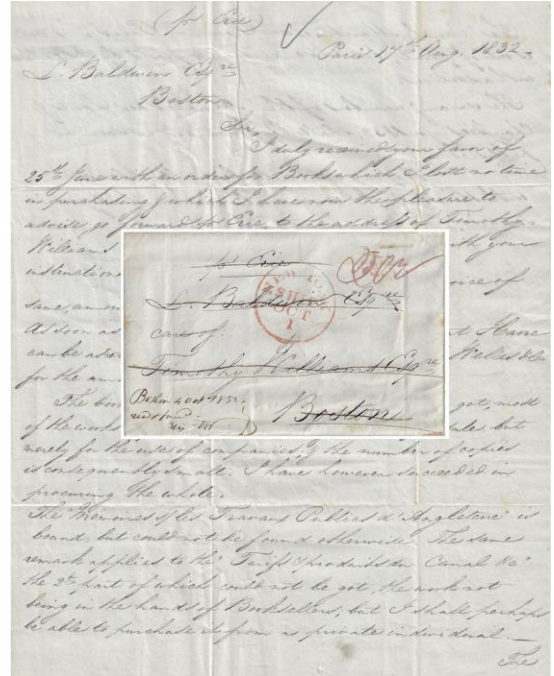 (pr Erie)
Paris 17th Aug. 1832 -
L. Baldwin Esqre
Boston
Sir,
I duly received your favor of
25th June with an order for Books which I lost no time
in purchasing & which I have now the pleasure to
advise, go forward pr Erie, to the address of Timothy
Williams
with your
instruction
same, amou
As soon as
Havre
can be
Welles & Co
for the am
The boo
got, most
of the work
sale, but
merely for the use of companies, & the number of copies
is consequently small. I have however succeeded in
procuring the whole.
The "Mémoires s/ les Travaux Publics d'Angleterre" is
bound, but could not be found otherwise. The same
remark applies to the "Tarifs & produits du Canal &c"
the 2d part of which could not be got, the work not
being in the hands of Booksellers, but I shall perhaps
be able to purchase it from a private individual —
The
pr Erie
L. Baldwin Esqre
care of
Timothy Williams Esqre
Boston
OCT
1
Boston 4 Oct 1832